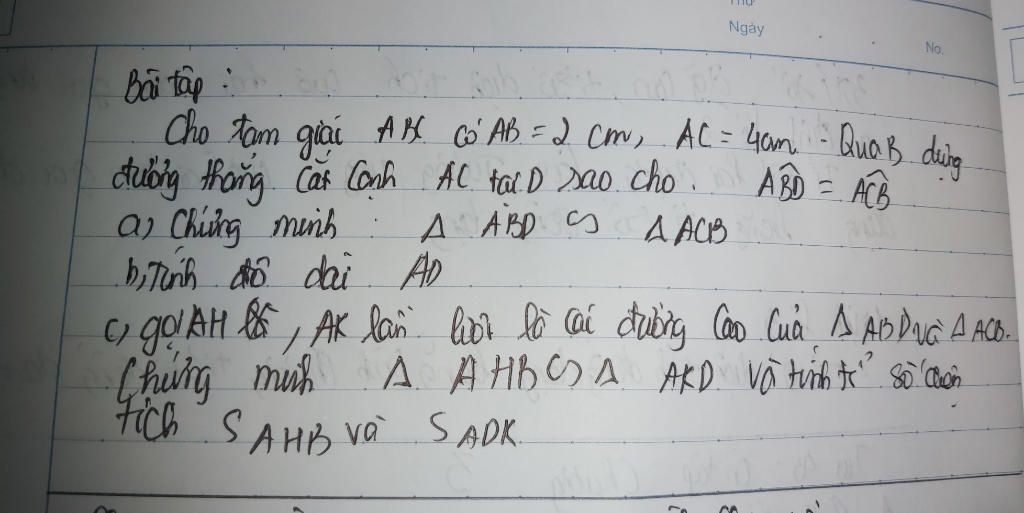 Thứ
Ngày
No.
Bài tập :
Cho tam giác ABC có AB = 2 cm, AC = 4cm . Qua B dựng
đường thẳng cắt cạnh AC tại D sao cho. ABD = ACB
a) Chứng minh : Δ ABD ∽ Δ ACB
b, Tính độ dài AD
c, gọi AH , AK lần lượt là cái đường cao của Δ ABD và Δ ACB.
Chứng minh Δ AHB ∽ Δ AKD và tính tỉ số
tích S AHB và S ADK